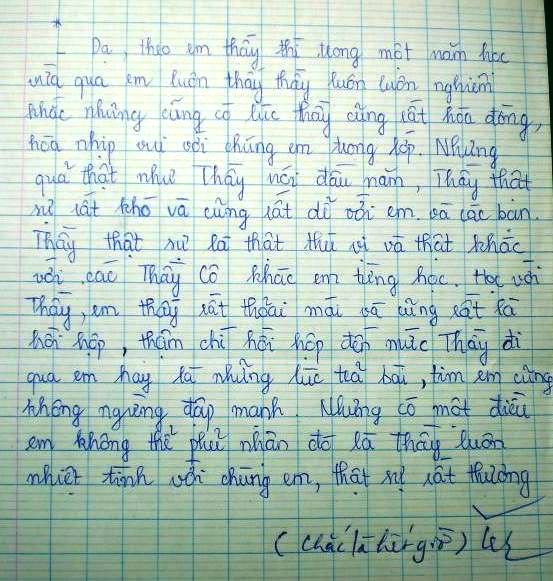 *
- Dạ, theo em thấy thì trong một năm học
vừa qua em luôn thấy thầy luôn luôn nghiêm
khắc nhưng cũng có lúc thầy cũng rất hòa đồng,
hòa nhịp vui với chúng em trong lớp. Nhưng
quả thật như Thầy nói đầu năm, Thầy thật
sự rất khó và cũng rất dễ với em và các bạn.
Thầy thật sự là thật thú vị và thật khác
với các Thầy Cô khác em từng học. Học với
Thầy, em thấy rất thoải mái và cũng rất là
hồi hộp, thậm chí hồi hộp đến mức Thầy đi
qua em hay là những lúc trả bài, tim em cũng
không ngừng đập mạnh. Nhưng có một điều
em không thể phủ nhận đó là Thầy luôn
nhiệt tình với chúng em, thật sự rất thương
(Chắc là hết giờ)